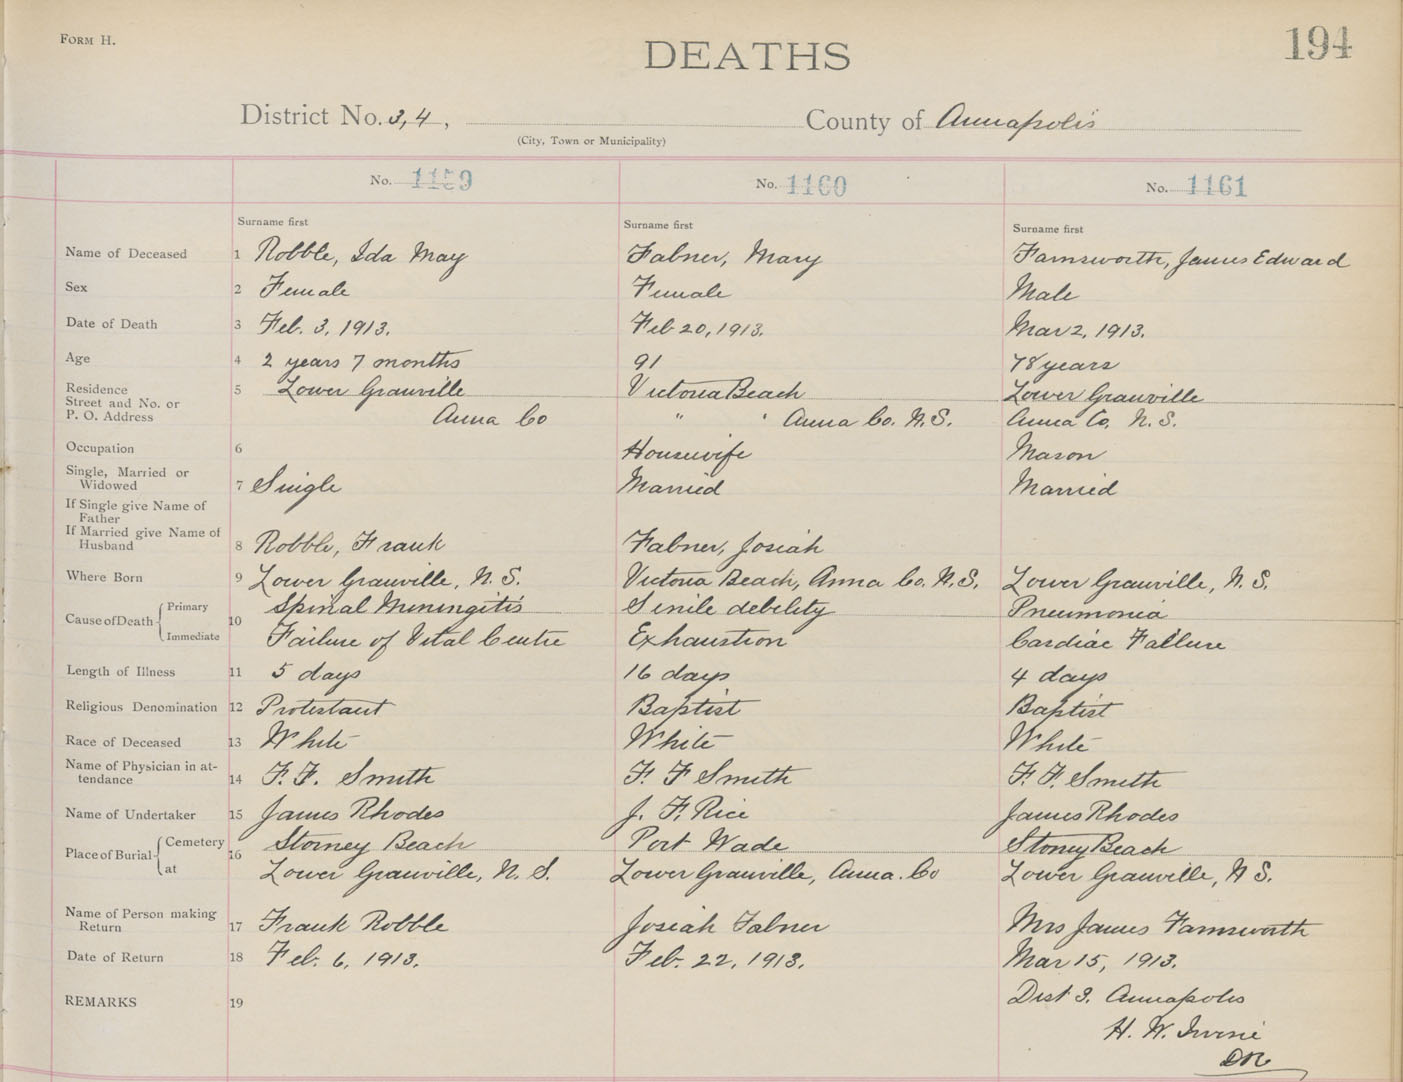 FORM H.
194
DEATHS
District No. 3, 4, County of Annapolis
(City, Town or Municipality)
No. 1159 No. 1160 No. 1161
Surname first Surname first Surname first
Name of Deceased 1 Robble, Ida May Fabner, Mary Farnsworth, James Edward
Sex 2 Female Female Male
Date of Death 3 Feb. 3, 1913. Feb 20, 1913. Mar 2, 1913.
Age 4 2 years 7 months 91 78 years
Residence 5 Lower Granville Victoria Beach Lower Granville
Street and No. or
P. O. Address Anna Co " " Anna Co. N.S. Anna Co, N.S.
Occupation 6 Housewife Mason
Single, Married or
Widowed 7 Single Married Married
If Single give Name of
Father
If Married give Name of
Husband 8 Robble, Frank Fabner, Josiah
Where Born 9 Lower Granville, N.S. Victoria Beach, Anna Co. N.S. Lower Granville, N.S.
Cause of Death 10 Primary Spinal Miningitis Senile debility Pneumonia
Immediate Failure of Vital Centre Exhaustion Cardiac Failure
Length of Illness 11 5 days 16 days 4 days
Religious Denomination 12 Protestant Baptist Baptist
Race of Deceased 13 White White White
Name of Physician in at-
tendance 14 F. F. Smith F. F Smith F. F. Smith
Name of Undertaker 15 James Rhodes J. F. Rice James Rhodes
Place of Burial 16 Cemetery Storney Beach Port Wade Stoney Beach
at Lower Granville, N.S. Lower Granville, Anna. Co Lower Granville, N S.
Name of Person making
Return 17 Frank Robble Josiah Fabner Mrs James Farnsworth
Date of Return 18 Feb. 6, 1913. Feb. 22, 1913. Mar 15, 1913.
REMARKS 19 Dist 3. Annapolis
H. W. Irvine
DR